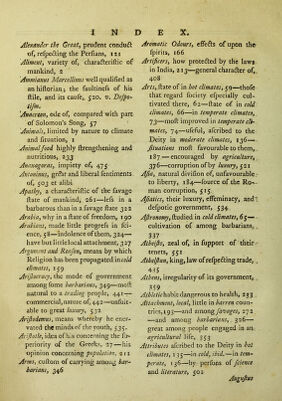 INDEX.
Alexander the Great, prudent conduct
of, respecting the Persians, 121
Aliment, variety of, characteristic of
mankind, 2
Ammianus Marcellinus well qualified as
an historian; the faultiness of his
stile, and its cause, 520. v. Despo-
tism.
Anacreon, ode of, compared with part
of Solomon's Song, 57
Animals, limited by nature to climate
and situation, 1
Animal food highly strengthening and
nutritious, 233
Anaxagoras, impiety of, 475
Antoninus, great and liberal sentiments
of, 503 et alibi
Apathy, a characteristic of the savage
state of mankind, 261—less in a
barbarous than in a savage state 322
Arabia, why in a state of freedom, 190
Arabians, made little progress in sci-
ence, 58—indolence of them, 324—
have but little local attachment, 327
Argument and Reason, means by which
Religion has been propagated in cold
climates, 159
Aristocracy, the mode of government
among some barbarians, 349—most
natural to a trading people, 441—
commercial, nature of, 442—unsuit-
able to great luxury, 532
Aristodemus, means whereby he ener-
vated the minds of the youth, 535.
Aristotle, idea of his concerning the su-
periority of the Greeks, 27—his
opinion concerning population, 212
Arms, custom of carrying among bar-
barians, 346
Aromatic Odours, effects of upon the
spirits, 166
Artificers, how protected by the laws
in India, 213—general character of,
408
Arts, state of in hot climates, 59—those
that regard society especially cul-
tivated there, 62—state of in cold
climates, 66—in temperate climates,
73—most improved in temperate cli-
mates, 74—useful, ascribed to the
Deity in moderate climates, 136—
situations most favourable to them,
187—encouraged by agriculture,
376—corruption of by luxury, 521
Asia, natural division of, unfavourable
to liberty, 184—source of the Ro-
man corruption, 515
Asiatics, their luxury, effeminacy, and
despotic government, 534
Astronomy, studied in cold climates, 65—
cultivation of among barbarians,
337
Atheists, zeal of, in support of their
tenets, 551
Athelstan, king, law of respecting trade,
415
Athens, irregularity of its government,
359
Athletic habit dangerous to health, 233
Attachment, local, little in barren coun-
tries, 195—and among savages, 272
—and among barbarians, 326—
great among people engaged in an
agricultural life, 353
Attributes ascribed to the Deity in hot
climates, 135—in cold, ibid.—in tem-
perate, 136—by persons of science
and literature, 502
Augustus